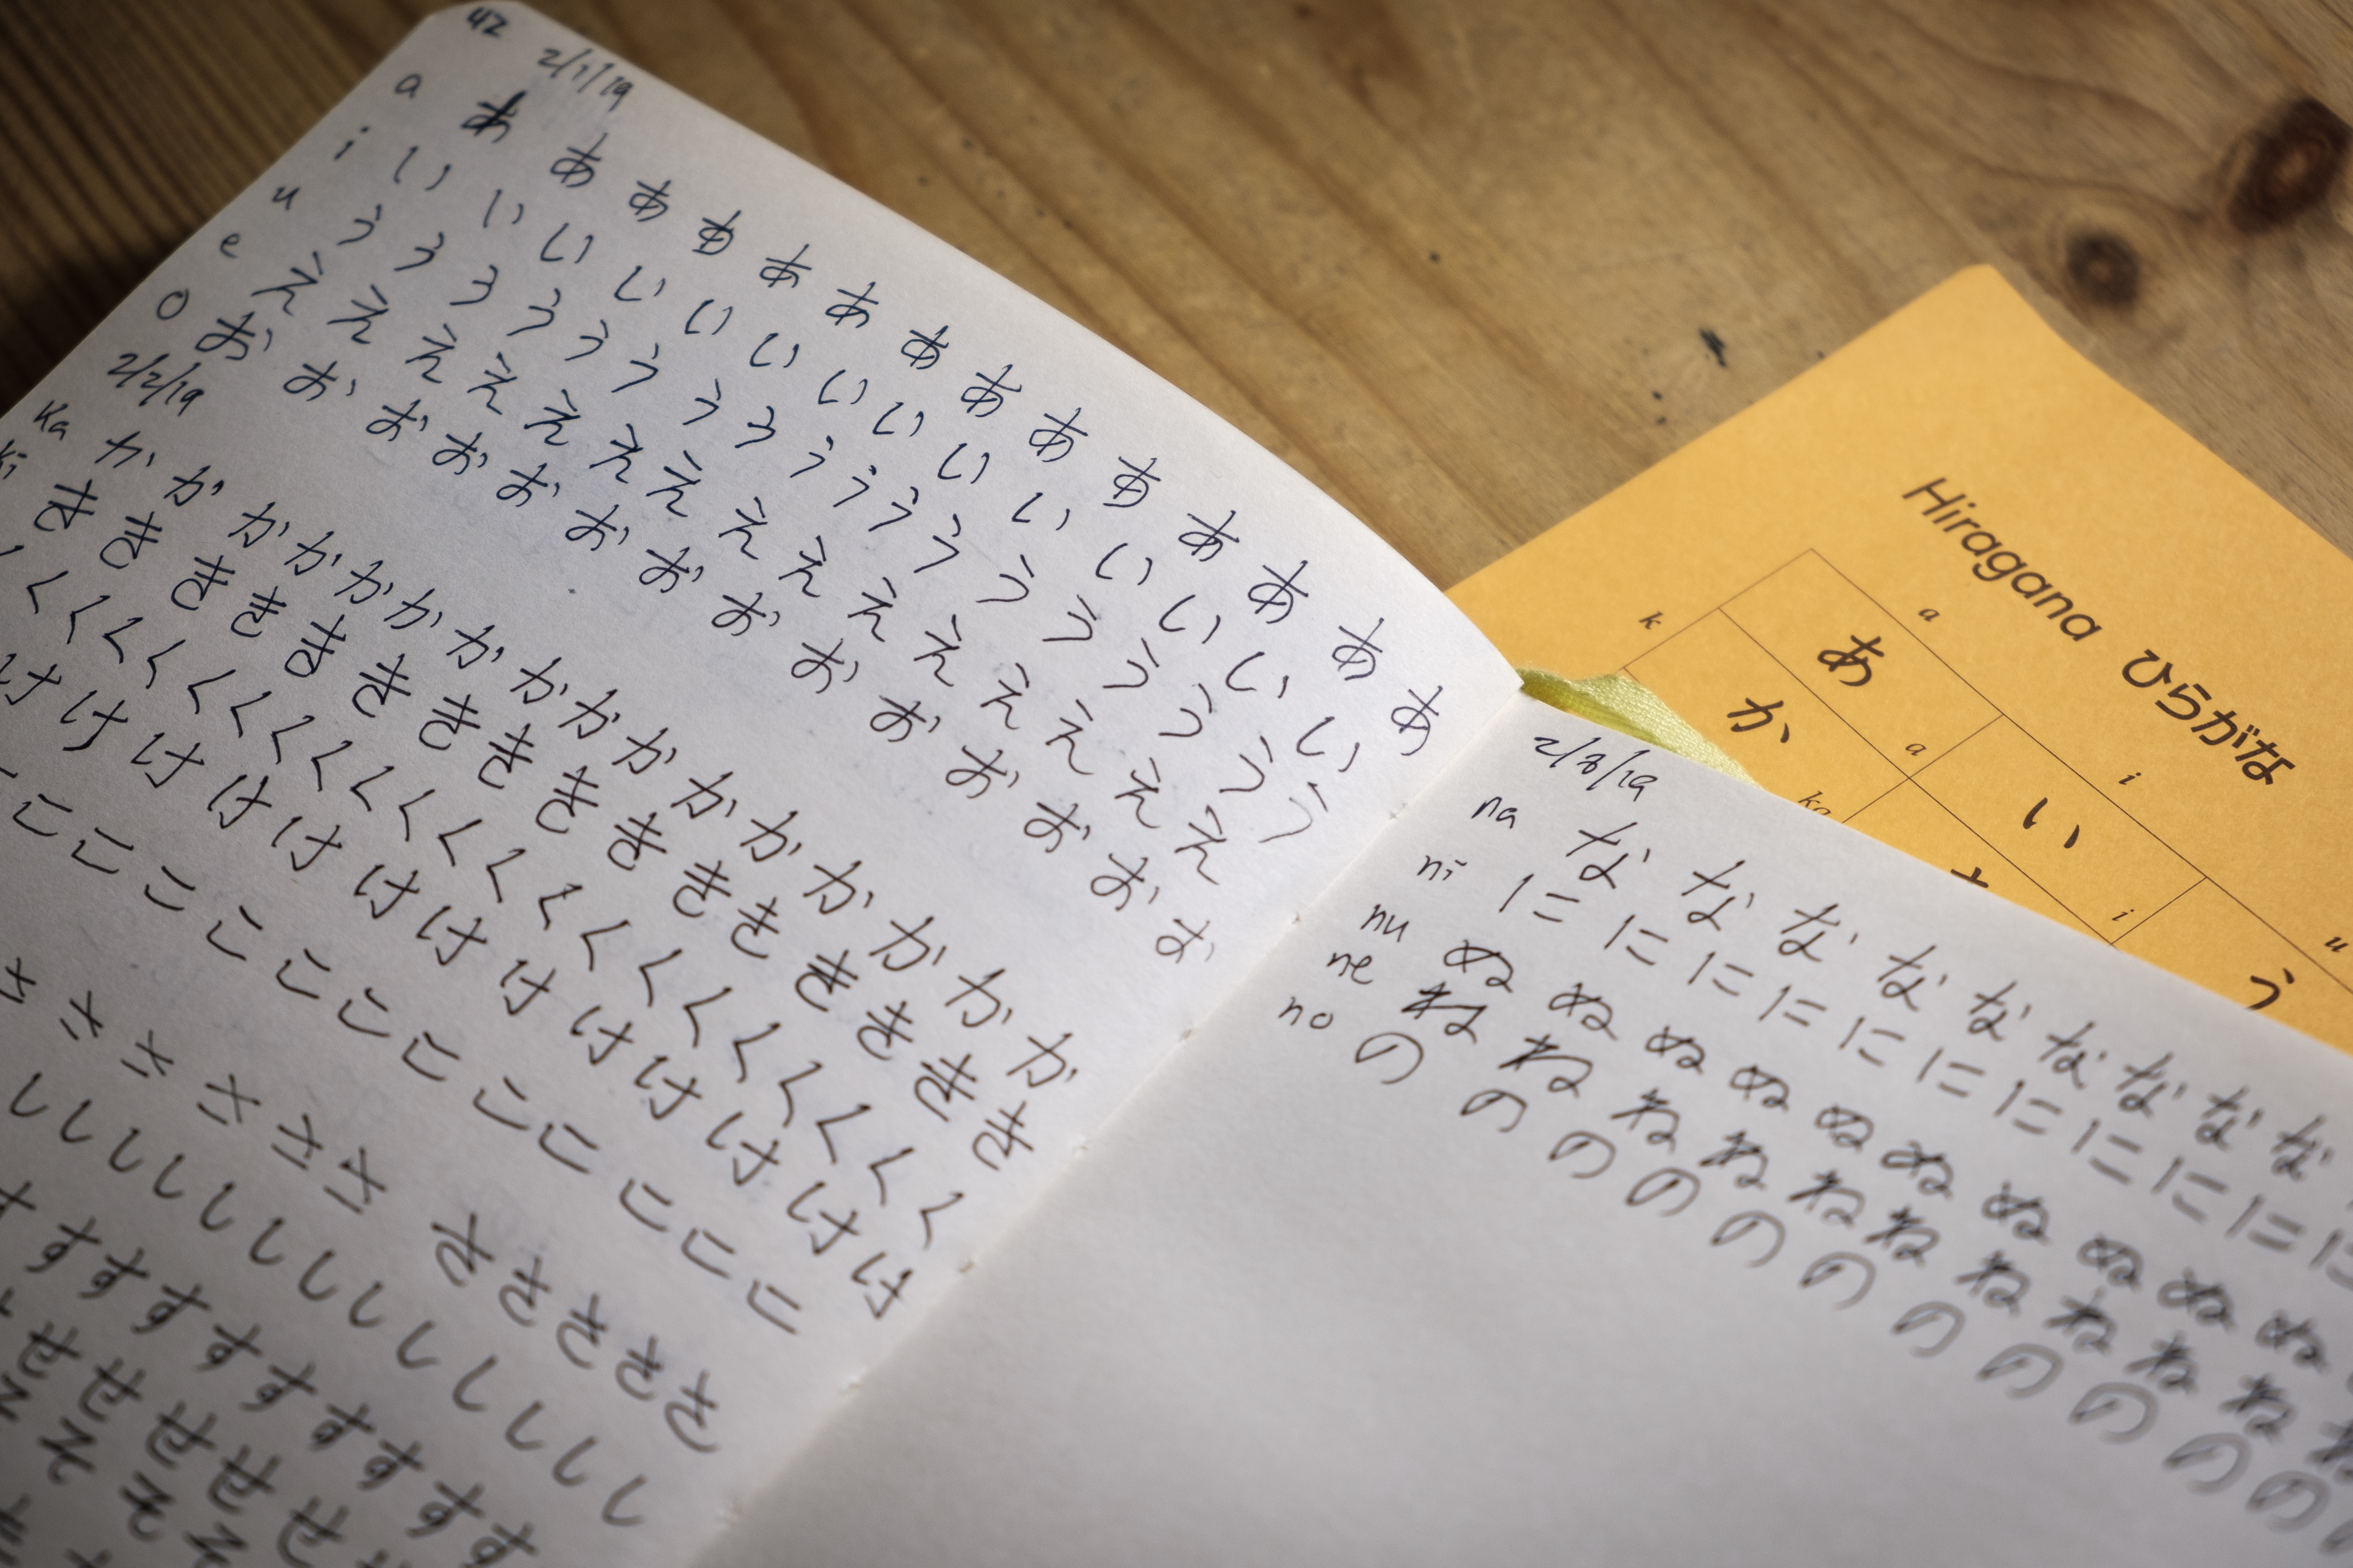 42
2/1/19
a あ あ あ あ あ あ あ あ あ あ あ あ あ あ
i い い い い い い い い い い い い い い
u う う う う う う う う う う う う う う う う う う
e え え え え え え え え え え え え え え え
o お お お お お お お お お お お お お お
2/2/19
ka か か か か か か か か か か か か か か か か
ki き き き き き き き き き き き き き き き き
く く く く く く く く く く く く く く く く く く く く く
け け け け け け け け け け け け け
こ こ こ こ こ こ こ こ こ こ こ こ
さ さ さ さ さ さ さ さ さ さ さ
し し し し し し し し し し し し し
す す す す す す す す す す
せ せ せ せ せ
そ そ そ
2/3/19
na な な な な な な な な な
ni に に に に に に に に に に に
nu ぬ ぬ ぬ ぬ ぬ ぬ ぬ ぬ ぬ ぬ
ne ね ね ね ね ね ね ね ね ね ね
no の の の の の の の の の の の
Hiragana ひらがな
a i u
あ a い i う
k か ka